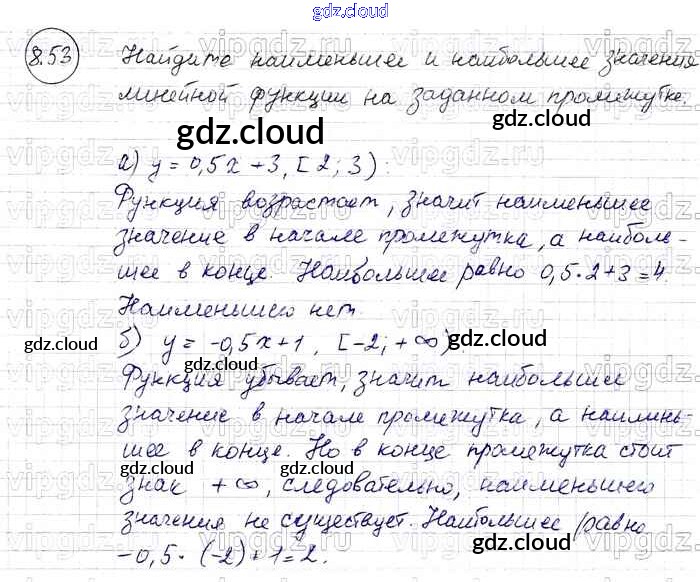 gdz.cloud
8.53 Найдите наименьшее и наибольшее значения
линейной функции на заданном промежутке.
gdz.cloud gdz.cloud
а) y = 0,5x + 3, [2; 3):
Функция возрастает, значит наименьшее
значение в начале промежутка, а наиболь-
шее в конце. Наибольшее равно 0,5·2+3=4.
Наименьшего нет.
б) y = -0,5x+1, [-2; +∞):
gdz.cloud gdz.cloud gdz.cloud
Функция убывает, значит наибольшее
значение в начале промежутка, а наимень-
шее в конце. Но в конце промежутка стоит
gdz.cloud gdz.cloud gdz.cloud
знак +∞, следовательно, наименьшего
значения не существует. Наибольшее равно
-0,5·(-2)+1=2.
gdz.cloud gdz.cloud